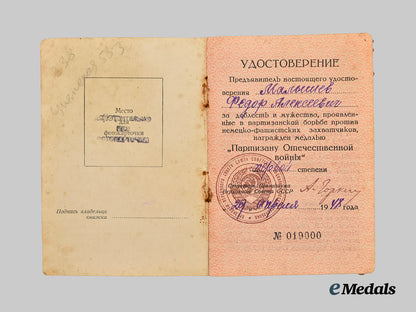 Место
фотокарточки
Подпись владельца
книжки
УДОСТОВЕРЕНИЕ
Предъявитель настоящего удосто-
верения Малышев
Федор Алексеевич
за доблесть и мужество, проявлен-
ные в партизанской борьбе против
немецко-фашистских захватчиков,
награжден медалью
„Партизану Отечественной
войны"
первой степени
Секретарь Президиума
Верховного Совета СССР А. Горкин
апреля 1948 года
№ 019000
eMedals